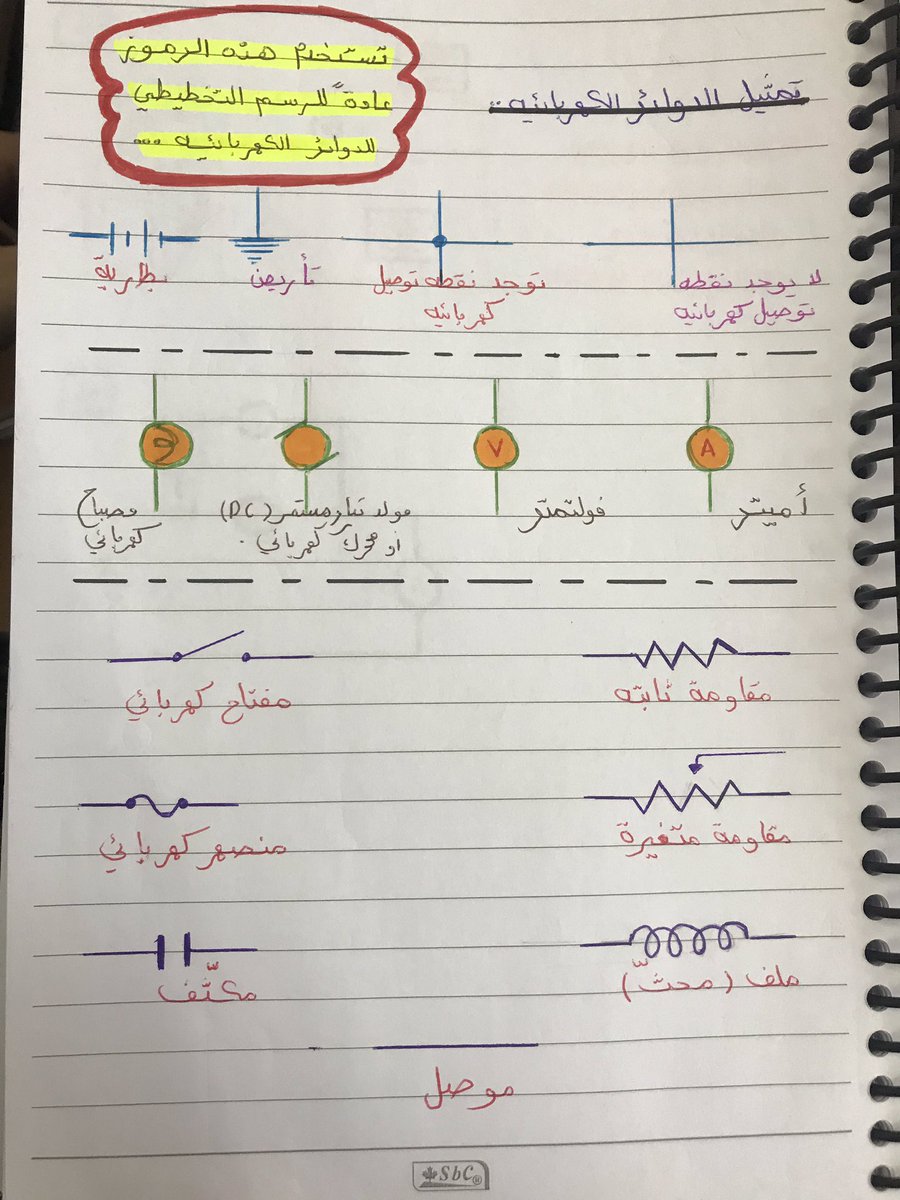 تمثيل الدوائر الكهربائيه..
تستخدم هذه الرموز
عادةً للرسم التخطيطي
للدوائر الكهربائيه ...
لا يوجد نقطه
توصيل كهربائيه
توجد نقطه توصيل
كهربائيه
تأريض
بطارية
A
أميتر
V
فولتمتر
مولد تيار مستمر (DC)
او محرك كهربائي .
مصباح
كهربائي
مقاومة ثابته
مفتاح كهربائي
مقاومة متغيرة
منصهر كهربائي
ملف (محثّ)
مكثّف
موصل
SbC